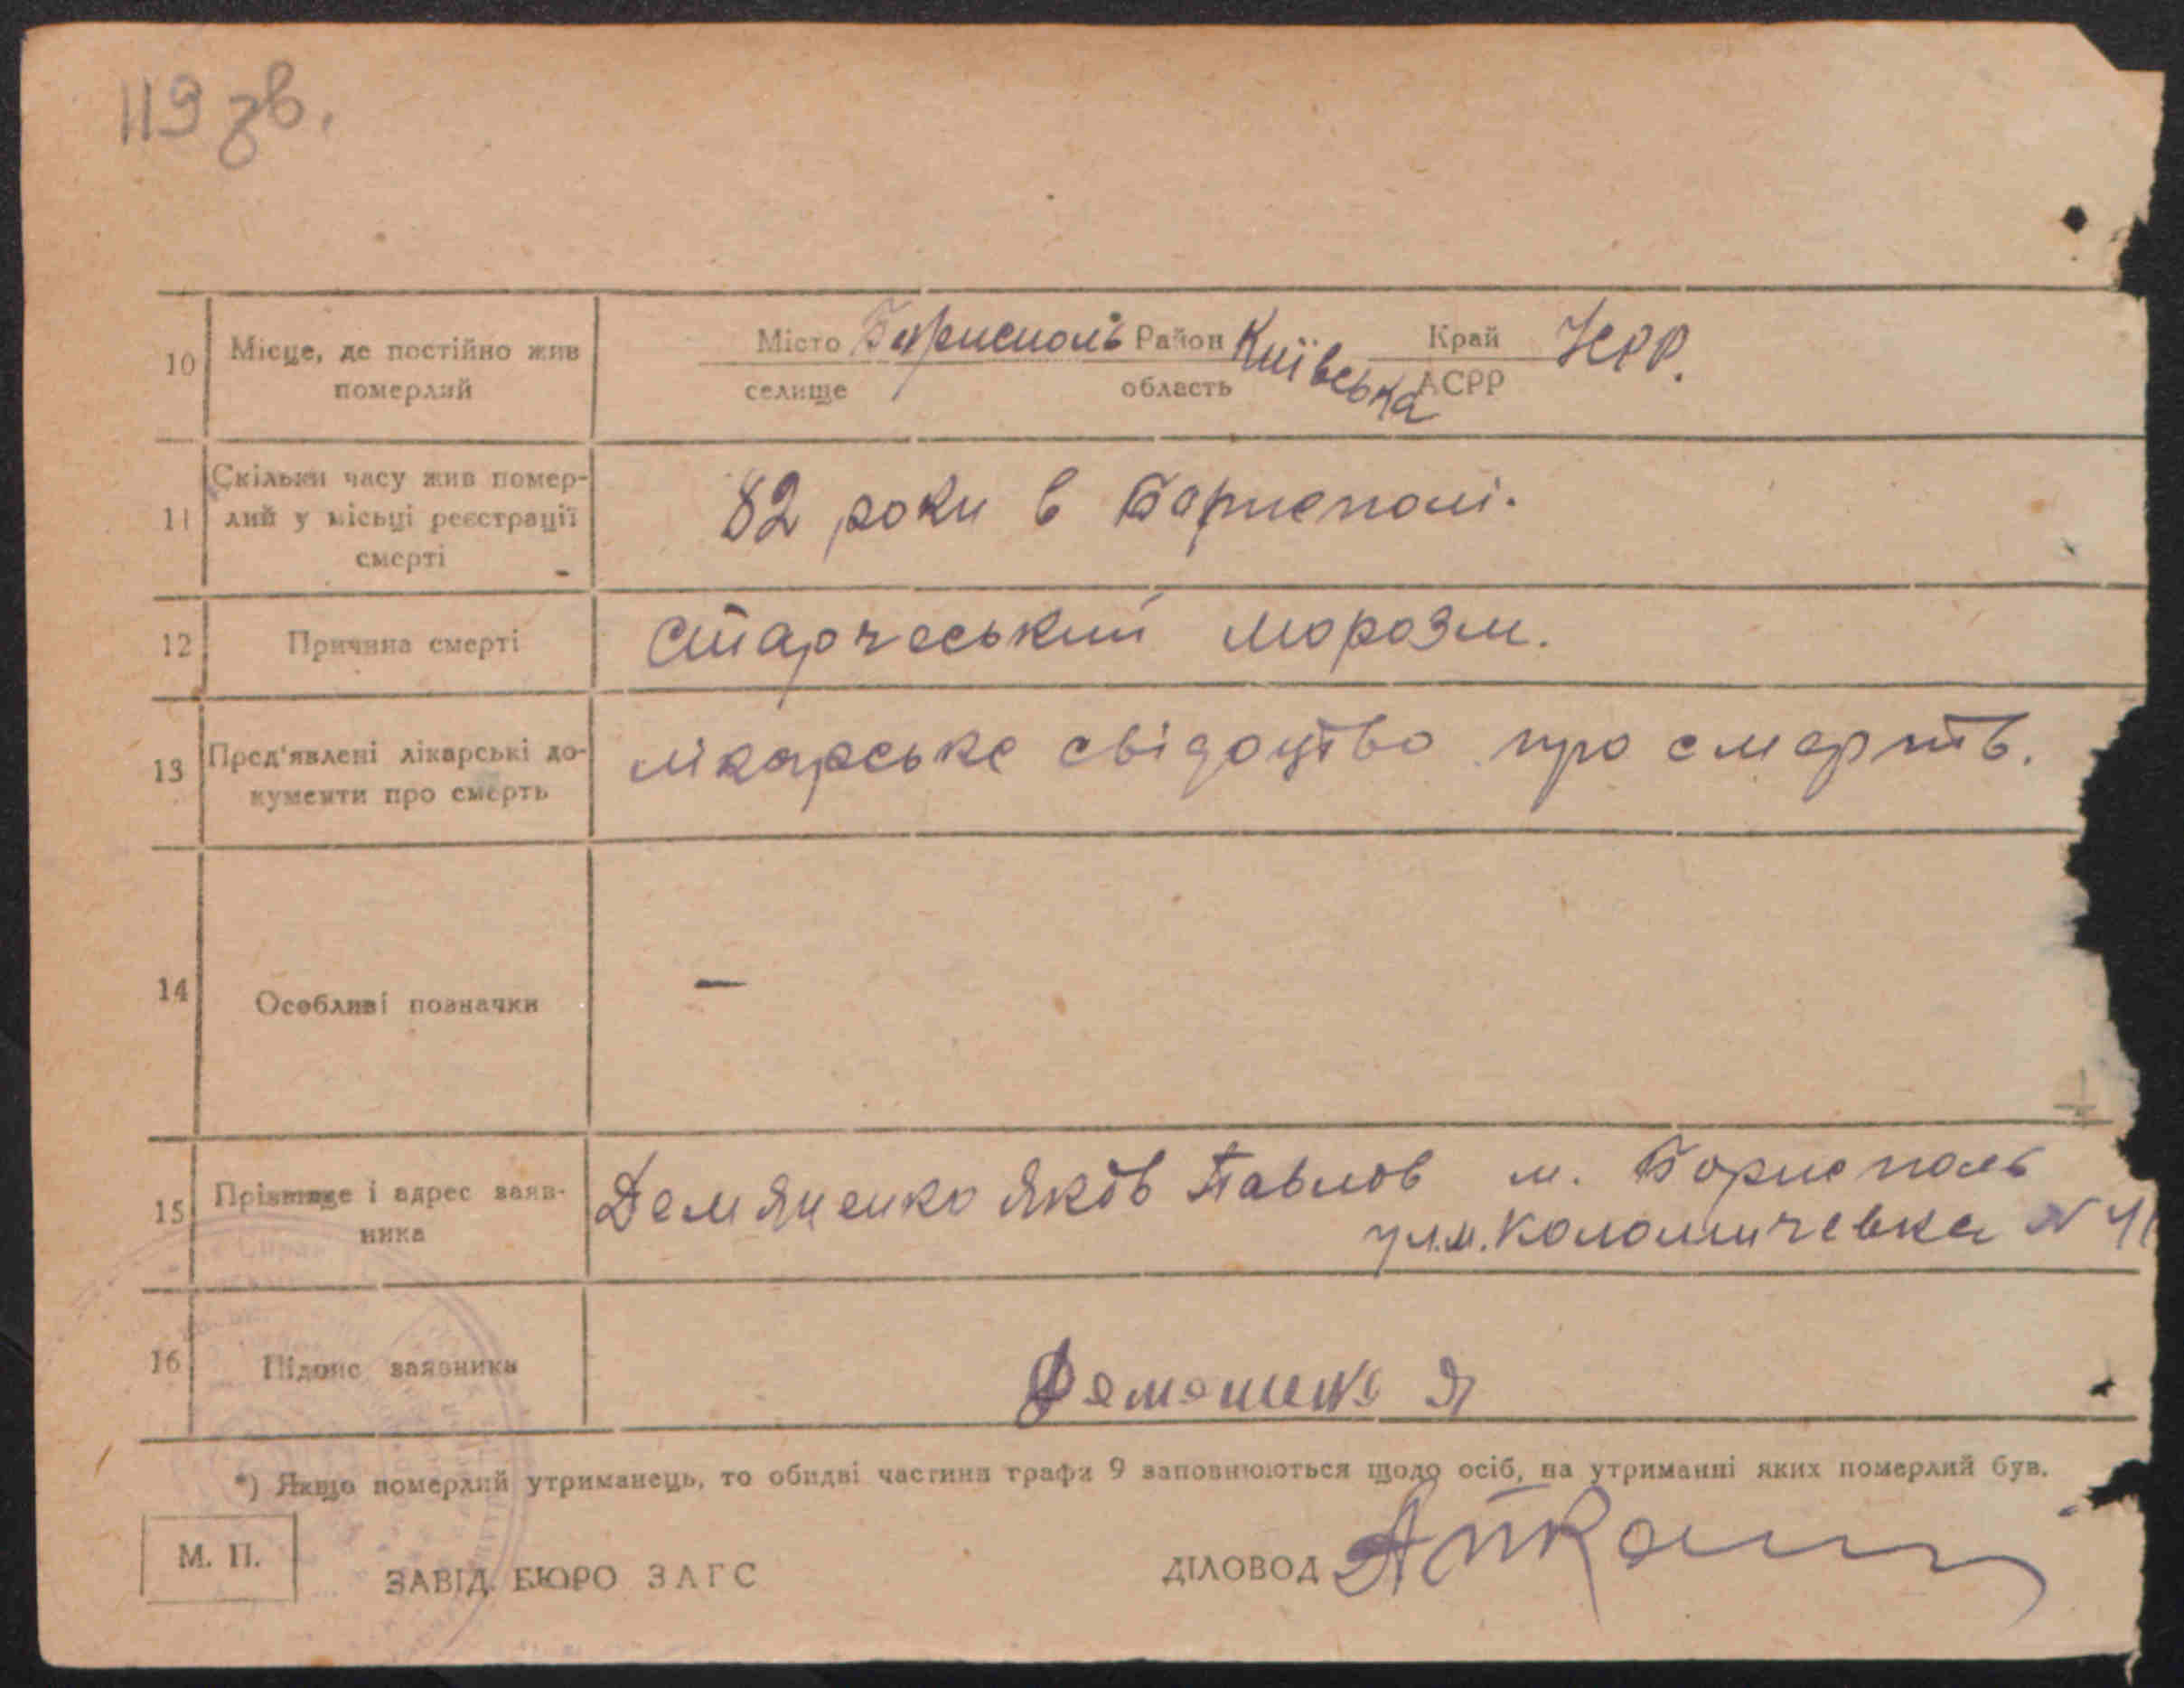 119 зв.
10 Місце, де постійно жив померлий
Місто Бориспіль Район Київська Край УСРР.
селище область АСРР
11 Скільки часу жив помер-
лий у місьці реєстрації
смерті
82 роки в Борисполі.
12 Причина смерті
старческький морозм.
13 Пред'явлені лікарські до-
кументи про смерть
лікарське свідоцтво про смерть.
14 Особливі позначки
—
15 Прізвище і адрес заяв-
ника
Демяненко Яков Павлов м. Борисполь
вул. Коломичевка N
16 Підпис заявника
Демяненко Я
*) Якщо померлий утриманець, то обидві частини графи 9 заповнюються щодо осіб, на утриманні яких померлий був.
М. П.
ЗАВІД. БЮРО ЗАГС
ДІЛОВОД